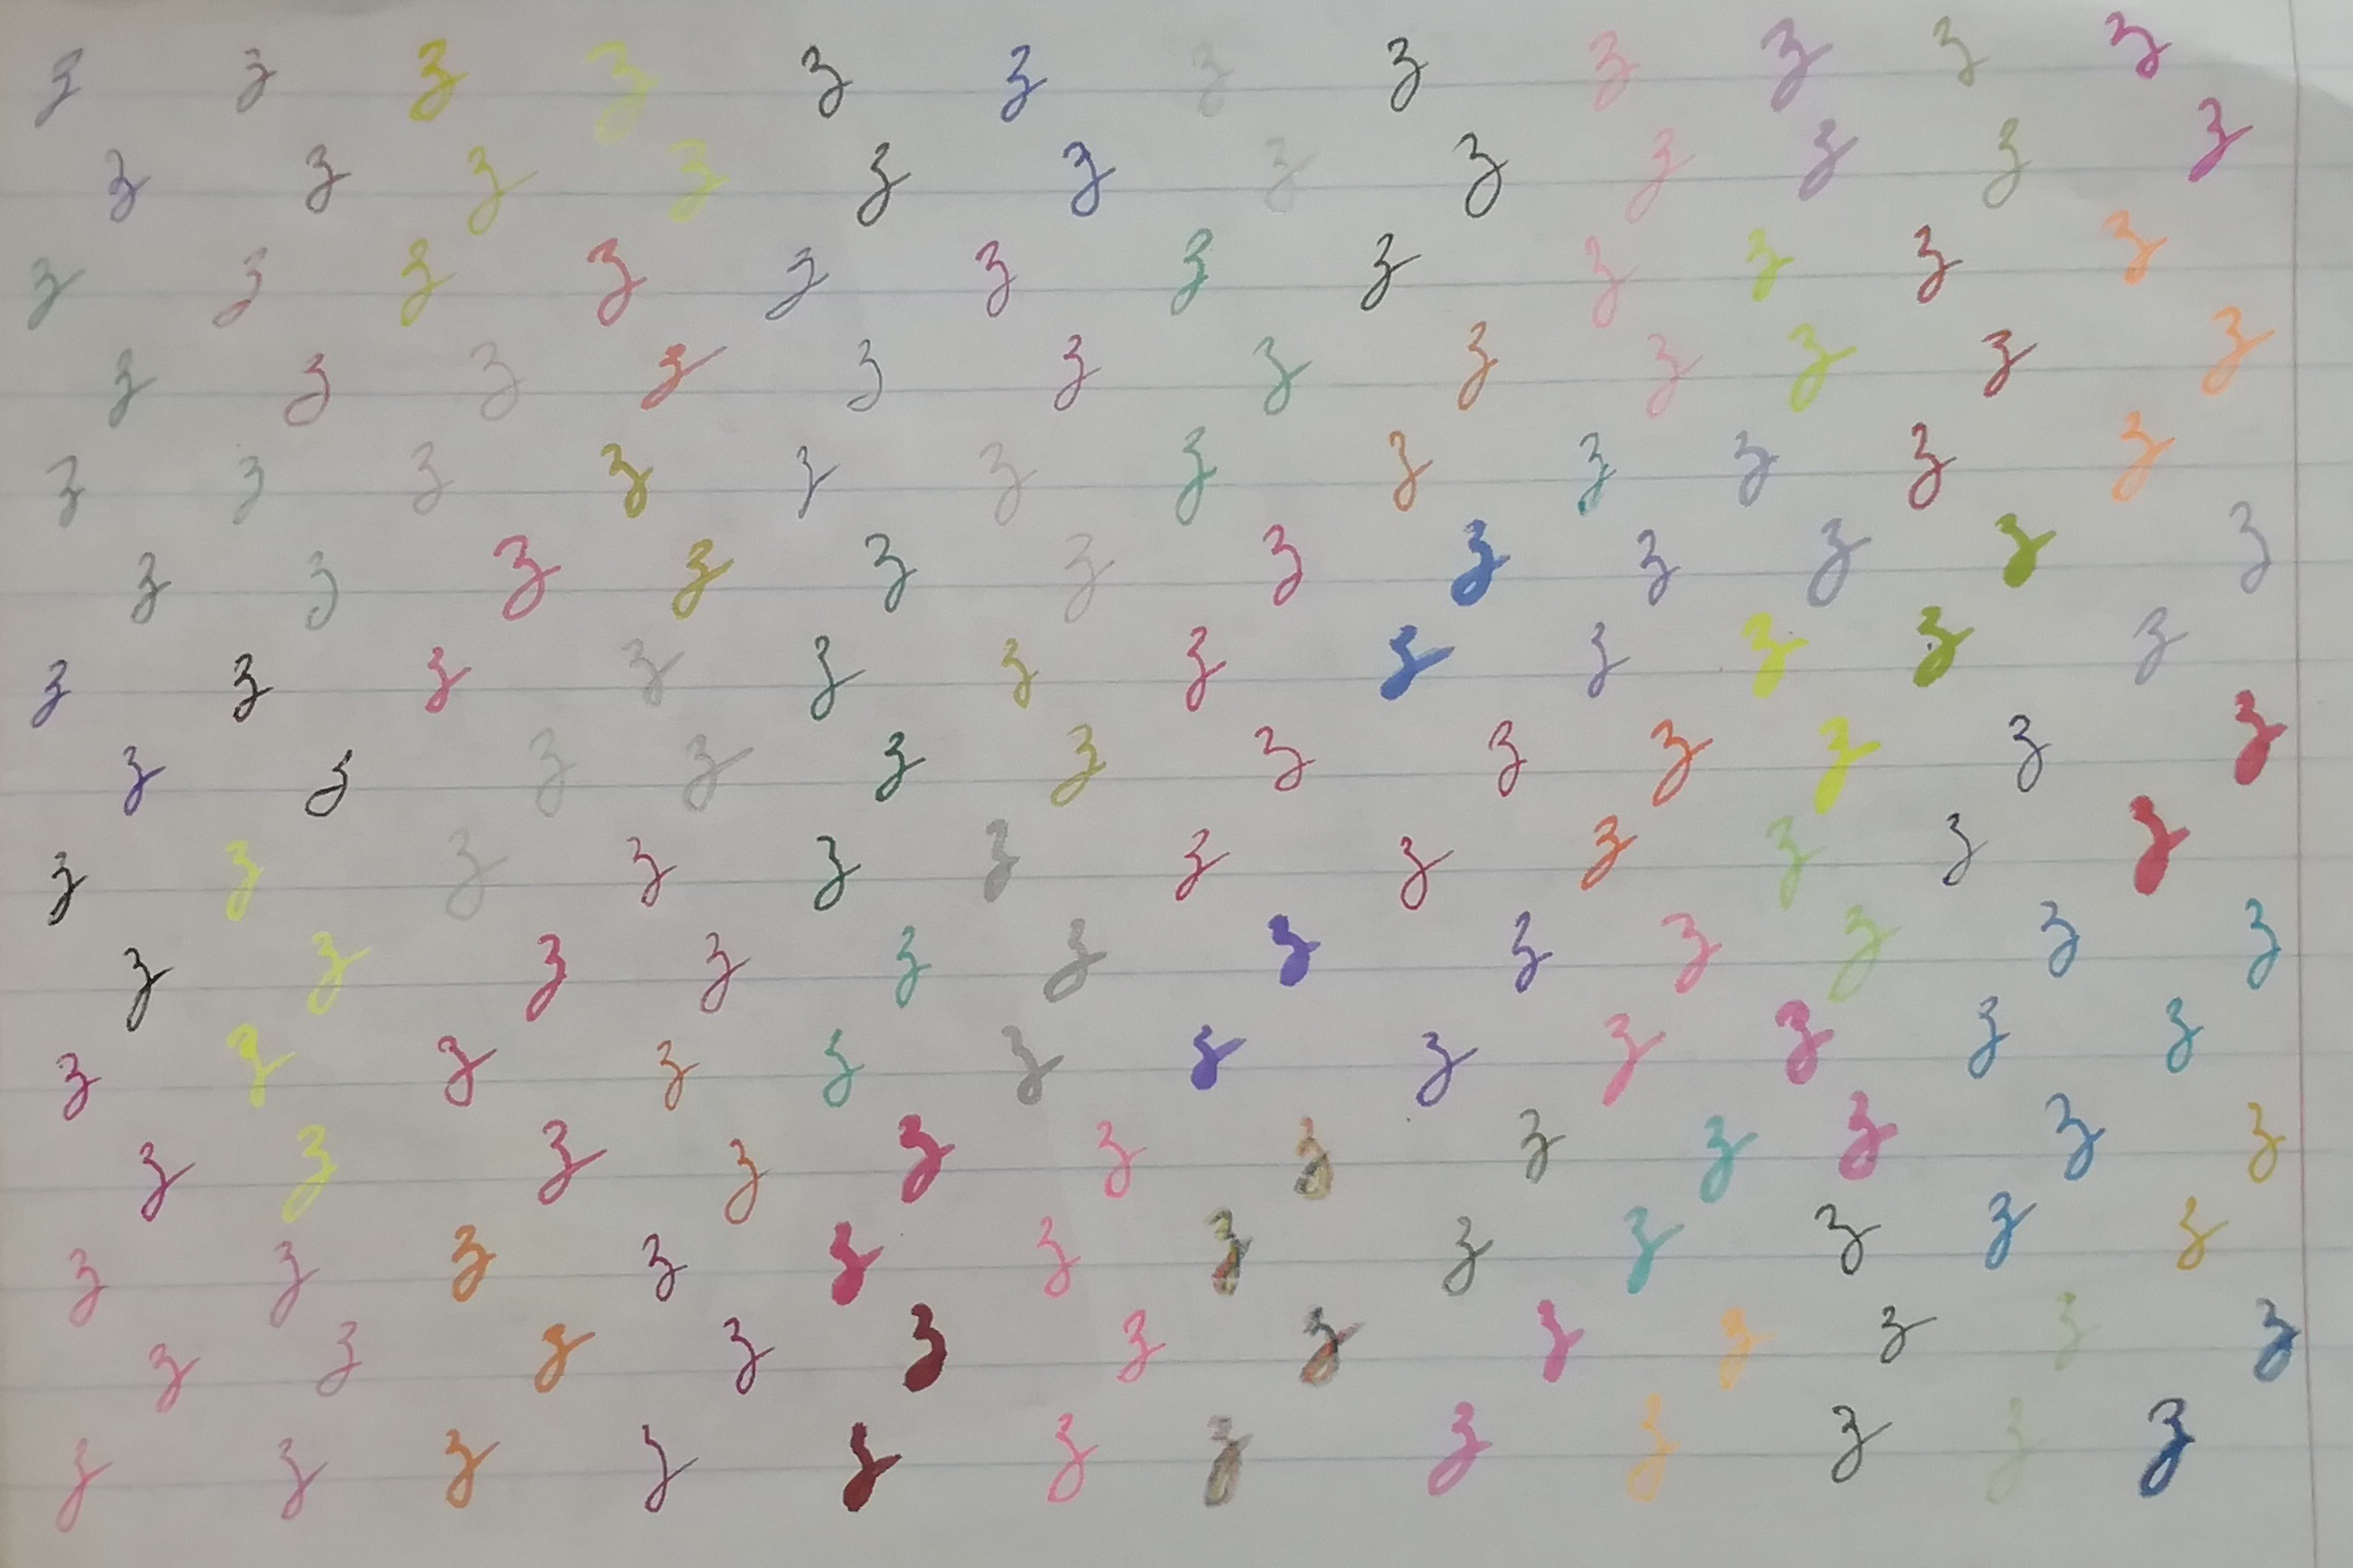 z z z z z z z z z z z z
z z z z z z z z z z z z
z z z z z z z z z z z z
z z z z z z z z z z z z
z z z z z z z z z z z z
z z z z z z z z z z z z
z z z z z z z z z z z z
z z z z z z z z z z z z
z z z z z z z z z z z z
z z z z z z z z z z z z
z z z z z z z z z z z z
z z z z z z z z z z z z
z z z z z z z z z z z z
z z z z z z z z z z z z
z z z z z z z z z z z z